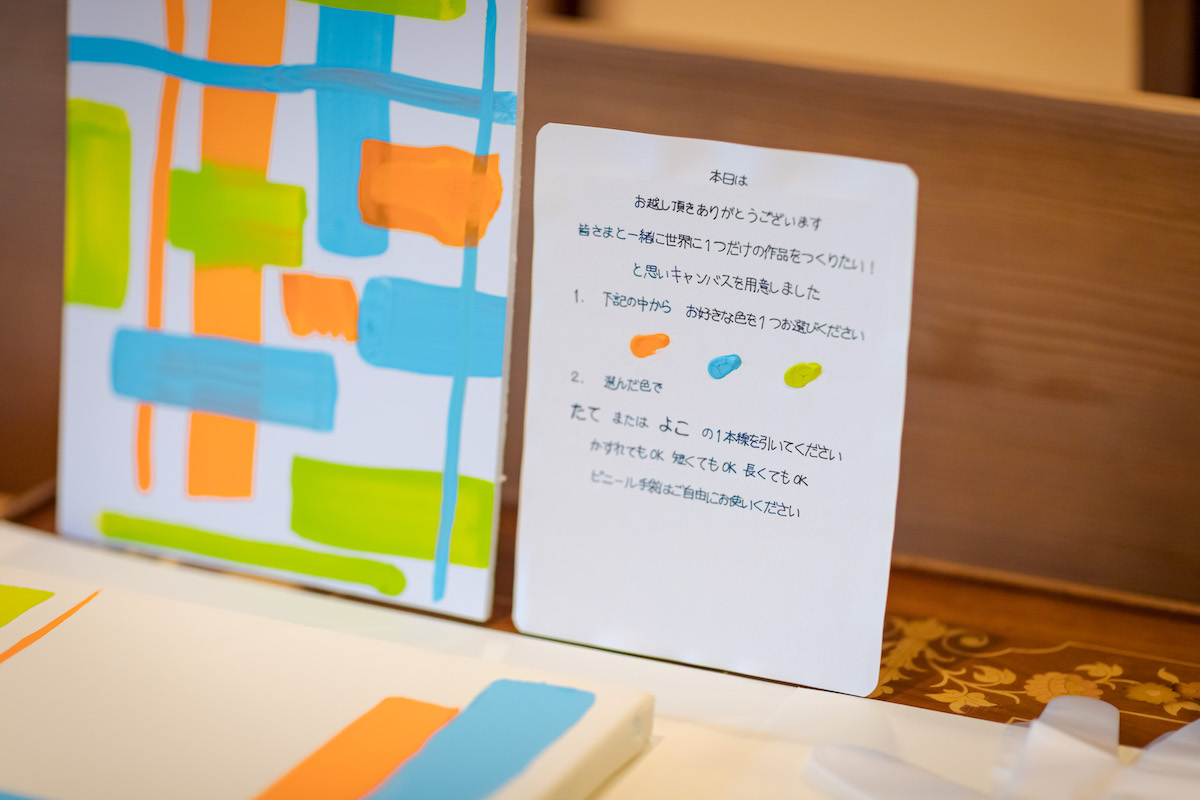 本日は
お越し頂きありがとうございます
皆さまと一緒に世界に1つだけの作品をつくりたい!
と思いキャンバスを用意しました
1. 下記の中から お好きな色を1つお選びください
2. 選んだ色で
たて または よこ の1本線を引いてください
かすれてもOK 短くてもOK 長くてもOK
ビニール手袋はご自由にお使いください